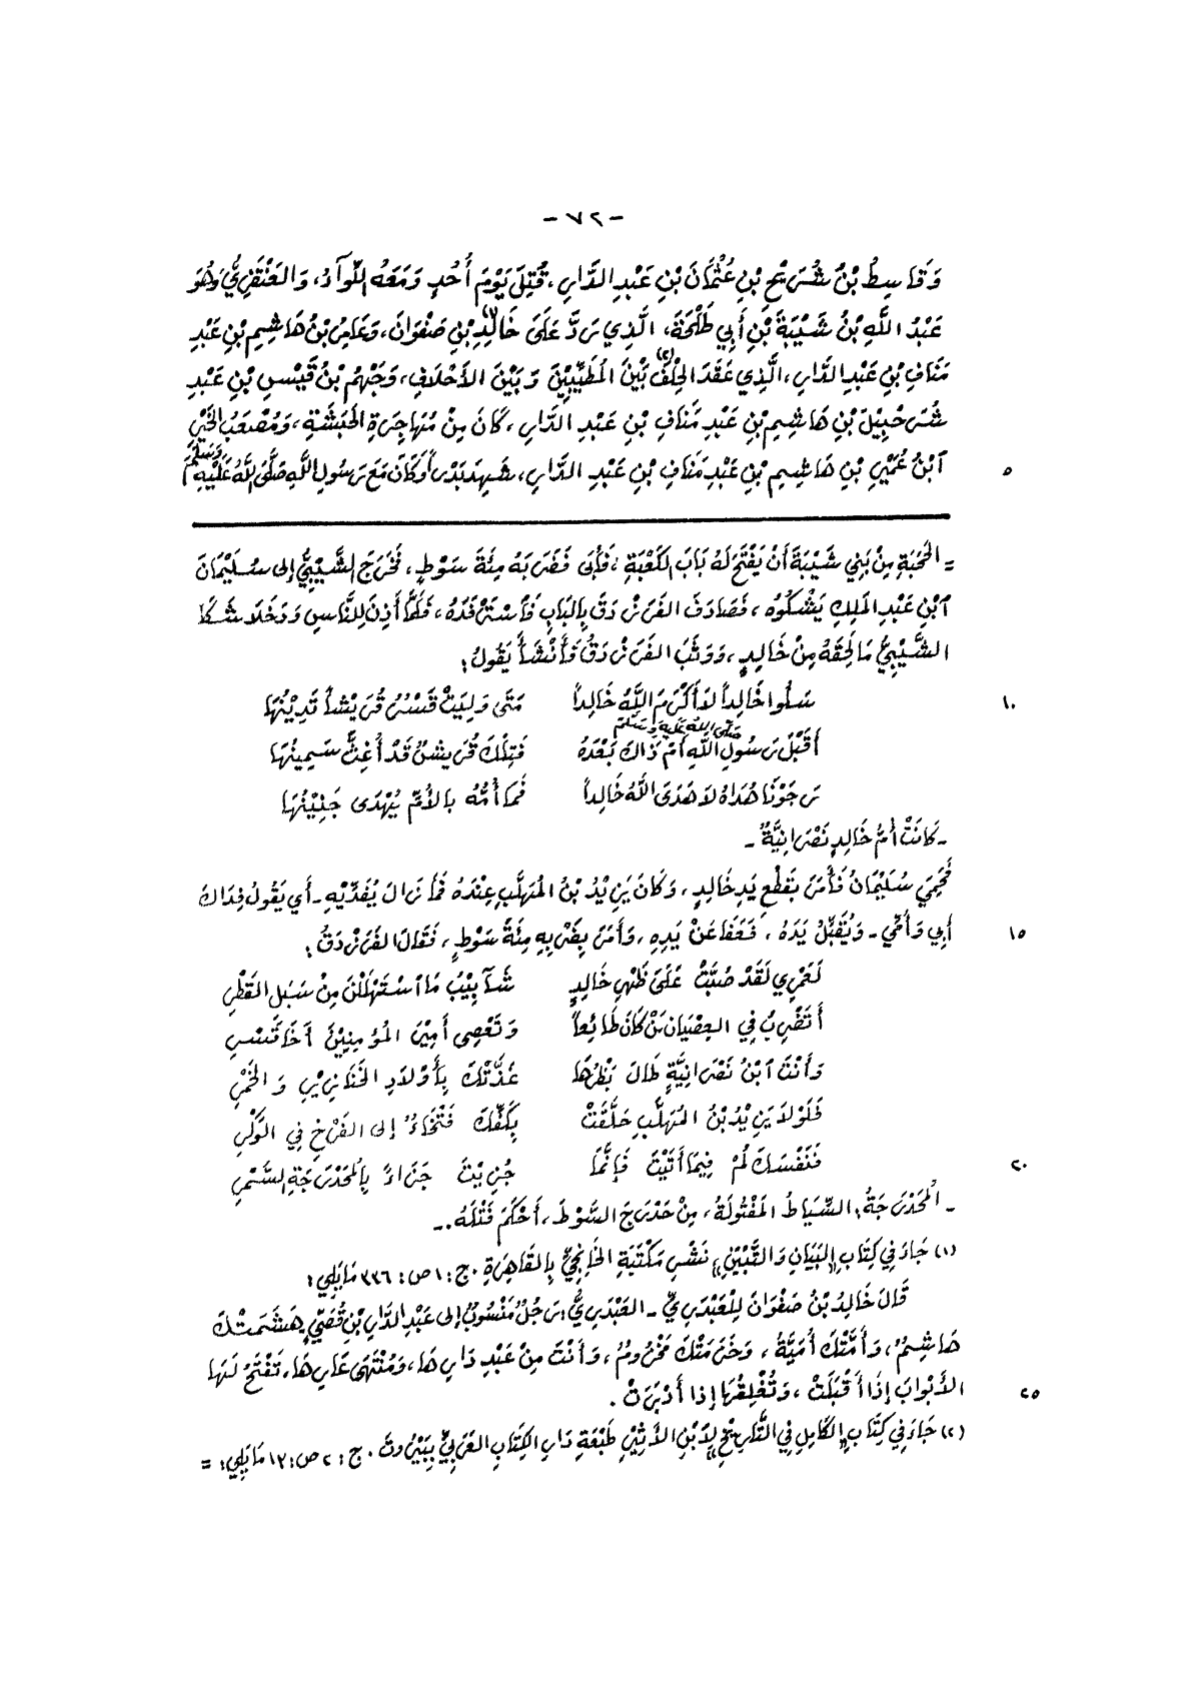 -٧٢-
وَقَاسِطُ بْنُ شُرَيْحِ بْنِ عُثْمَانَ بْنِ عَبْدِ الدَّارِ، قُتِلَ يَوْمَ أُحُدٍ وَمَعَهُ اللِّوَاءُ، وَالعَنْقَزِيُّ وَهُوَ
عَبْدُ اللَّهِ بْنُ شَيْبَةَ بْنِ أَبِي طَلْحَةَ، الَّذِي رَدَّ عَلَى خَالِدِ (١) بْنِ صَفْوَانَ، وَعَامِرُ بْنُ هَاشِمِ بْنِ عَبْدِ
مَنَافِ بْنِ عَبْدِ الدَّارِ، الَّذِي عَقَدَ الحِلْفَ (٢) بَيْنَ المُطَيَّبِيْنَ وَبَيْنَ الأَحْلَافِ، وَجَهْمُ بْنُ قَيْسِ بْنِ عَبْدِ
شُرَحْبِيْلَ بْنِ هَاشِمِ بْنِ عَبْدِ مَنَافِ بْنِ عَبْدِ الدَّارِ، كَانَ مِنْ مُهَاجِرَةِ الحَبَشَةِ، وَمُصْعَبُ الخَيْرِ
ٱبْنُ عُمَيْرِ بْنِ هَاشِمِ بْنِ عَبْدِ مَنَافِ بْنِ عَبْدِ الدَّارِ، شَهِدَ بَدْرَاً وَكَانَ مَعَ رَسُولِ اللَّهِ صَلَّى اللَّهُ عَلَيْهِ وَسَلَّمَ
٥
= الحَجَبَةِ مِنْ بَنِي شَيْبَةَ أَنْ يَفْتَحَ لَهُ بَابَ الكَعْبَةِ، فَأَبَى فَضَرَبَهُ مِئَةَ سَوْطٍ، فَخَرَجَ الشَّيْبِيُّ إلى سُلَيْمَانَ
ٱبْنِ عَبْدِ المَلِكِ يَشْكُوْهُ، فَصَادَفَ الفَرَزْدَقَ بِالبَابِ فَاسْتَرْفَدَهُ، فَلَمَّا أَذِنَ لِلنَّاسِ وَدَخَلَا شَكَا
الشَّيْبِيُّ مَا لَحِقَهُ مِنْ خَالِدٍ، وَوَثَبَ الفَرَزْدَقُ فَأَنْشَأَ يَقُولُ:
سَلُوا خَالِداً لَا أَكْرَمَ اللَّهُ خَالِداً مَتَى وَلِيَتْ قَسْرٌ قُرَيْشاً تَدِيْنُهَا ١٠
أَقَبْلَ رَسُولِ اللَّهِ صَلَّى اللَّهُ عَلَيْهِ وَسَلَّمَ أَمْ ذَاكَ بَعْدَهُ فَتِلْكَ قُرَيْشٌ قَدْ أَغَثَّ سَمِينُهَا
رَجَوْنَا هُدَاهُ لَا هَدَى اللَّهُ خَالِداً فَمَا أُمُّهُ بِالأُمِّ يُهْدَى جَنِيْنُهَا
- كَانَتْ أُمُّ خَالِدٍ نَصْرَانِيَّةً -
فَحَمِيَ سُلَيْمَانُ فَأَمَرَ بِقَطْعِ يَدِ خَالِدٍ، وَكَانَ يَزِيْدُ بْنُ المُهَلَّبِ عِنْدَهُ فَمَا زَالَ يُفَدِّيْهِ - أَي يَقُولُ فِدَاكَ
أَبِي وَأُمِّي - وَيُقَبِّلُ يَدَهُ، فَعَفَا عَنْ يَدِهِ، وَأَمَرَ بِضَرْبِهِ مِئَةَ سَوْطٍ، فَقَالَ الفَرَزْدَقُ: ١٥
لَعَمْرِي لَقَدْ صُبَّتْ عَلَى ظَهْرِ خَالِدٍ شَآبِيْبُ مَا ٱسْتَهْلَلْنَ مِنْ سَبَلِ القَطْرِ
أَتَضْرِبُ فِي العِصْيَانِ مَنْ كَانَ طَائِعاً وَتَعْصِي أَمِيْرَ المُؤْمِنِيْنَ أَخَا قَسْرِ
وَأَنْتَ ٱبْنُ نَصْرَانِيَّةٍ طَالَ بَظْرُهَا غَذَتْكَ بِأَوْلَادِ الخَنَازِيْرِ وَالخَمْرِ
فَلَوْلَا يَزِيْدُ بْنُ المُهَلَّبِ حَلَّقَتْ بِكَفِّكَ فَتْخَاءُ إلى الفَرْخِ فِي الوَكْرِ
فَنَفْسَكَ لُمْ فِيمَا أَتَيْتَ فَإِنَّمَا جُزِيْتَ جَزَاءً بِالمُحَدْرَجَةِ السُّمْرِ ٢٠
- المُحَدْرَجَةُ: السِّيَاطُ المَفْتُولَةُ، مِنْ حَدْرَجَ السَّوْطَ، أَحْكَمَ فَتْلَهُ -.
(١) جَاءَ فِي كِتَابِ «البَيَانِ وَالتَّبْيِيْنِ» نَشْرِ مَكْتَبَةِ الخَانْجِيِّ بِالقَاهِرَةِ. ج: ١ ص: ٣٣٦ مَا يَلِي:
قَالَ خَالِدُ بْنُ صَفْوَانَ لِلْعَبْدَرِيِّ - العَبْدَرِيُّ: رَجُلٌ مَنْسُوبٌ إلى عَبْدِ الدَّارِ بْنِ قُصَيٍّ - هَشَمَتْكَ
هَاشِمٌ، وَأَمَّتْكَ أُمَيَّةُ، وَخَزَمَتْكَ مَخْزُومٌ، وَأَنْتَ مِنْ عَبْدِ دَارِهَا، وَمُنْتَهَى عَارِهَا، تَفْتَحُ لَهَا
الأَبْوَابَ إِذَا أَقْبَلَتْ، وَتُغْلِقُهَا إِذَا أَدْبَرَتْ. ٢٥
(٢) جَاءَ فِي كِتَابِ «الكَامِلِ فِي التَّارِيْخِ» لِابْنِ الأَثِيْرِ طَبْعَةِ دَارِ الكِتَابِ العَرَبِيِّ بِبَيْرُوتَ. ج: ٢ ص: ١٣ مَا يَلِي: =